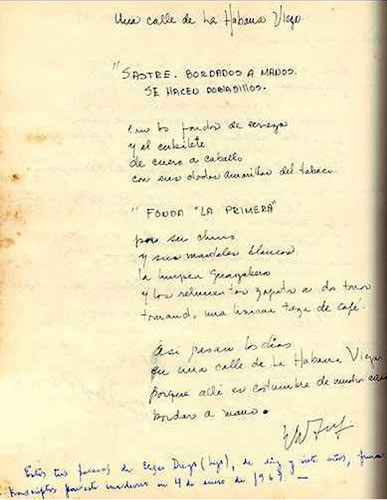 Una calle de La Habana Vieja.
"SASTRE. BORDADOS A MANOS.
SE HACEN DOBLADILLOS.
con los fondos de cerveza
y el cubilete
de cuero a caballo
con sus dados amarillos del tabaco.
"FONDA "LA PRIMERA"
por su chino
y sus manteles blancos
la limpia guayabera
y los relucientes zapatos a dos tonos
tomando una buena taza de café.
Así pasan los días
en una calle de La Habana Vieja
porque allí es costumbre de
bordar a mano.
Estos tres poemas de Eliseo Diego (hijo), de diez y siete años, fueron
transcriptos por esta en 4 de enero de 1969 —